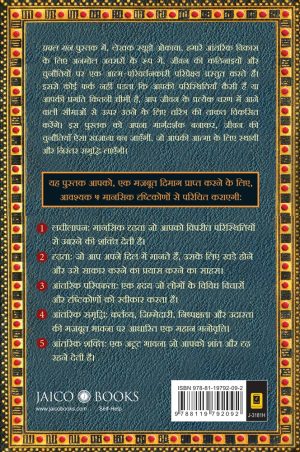 प्रबल मन पुस्तक में, लेखक रयुहो ओकावा, हमारे आंतरिक विकास
के लिए अनमोल अवसरों के रूप में, जीवन की कठिनाइयों और
चुनौतियों पर एक आत्म-परिवर्तनकारी परिप्रेक्ष्य प्रस्तुत करते हैं।
इससे कोई फर्क नहीं पड़ता कि आपकी परिस्थितियाँ कैसी हैं या
आपकी प्रगति कितनी धीमी है, आप जीवन के प्रत्येक चरण में आने
वाली सीमाओं से ऊपर उठने के लिए चरित्र की ताकत विकसित
करेंगे। इस पुस्तक को अपना मार्गदर्शक बनाकर, जीवन की
चुनौतियाँ ऐसा खज़ाना बन जाएँगी, जो आपकी आत्मा के लिए स्थायी
और निरंतर समृद्धि लाएँगी।
यह पुस्तक आपको, एक मजबूत दिमाग प्राप्त करने के लिए,
आवश्यक ५ मानसिक दृष्टिकोणों से परिचित कराएगी:
1 लचीलापन: मानसिक दृढ़ता जो आपको विपरीत परिस्थितियों
से उबरने की शक्ति देती है।
2 दृढ़ता: जो आप अपने दिल में मानते हैं, उसके लिए खड़े होने
और उसे साकार करने का प्रयास करने का साहस।
3 आंतरिक परिपक्वता: एक हृदय जो लोगों के विविध विचारों
और दृष्टिकोणों को स्वीकार करता है।
4 आंतरिक समृद्धि: कर्तव्य, जिम्मेदारी, निष्पक्षता और उदारता
की मजबूत भावना पर आधारित एक महान मनोवृत्ति।
5 आंतरिक शक्ति: एक अटूट भावना जो आपको शांत और दृढ़
रहने देती है।
JAICO BOOKS
www.jaicobooks.com
Self-Help
ISBN 978-81-19792-09-2
9 788119 792092
J-3181H